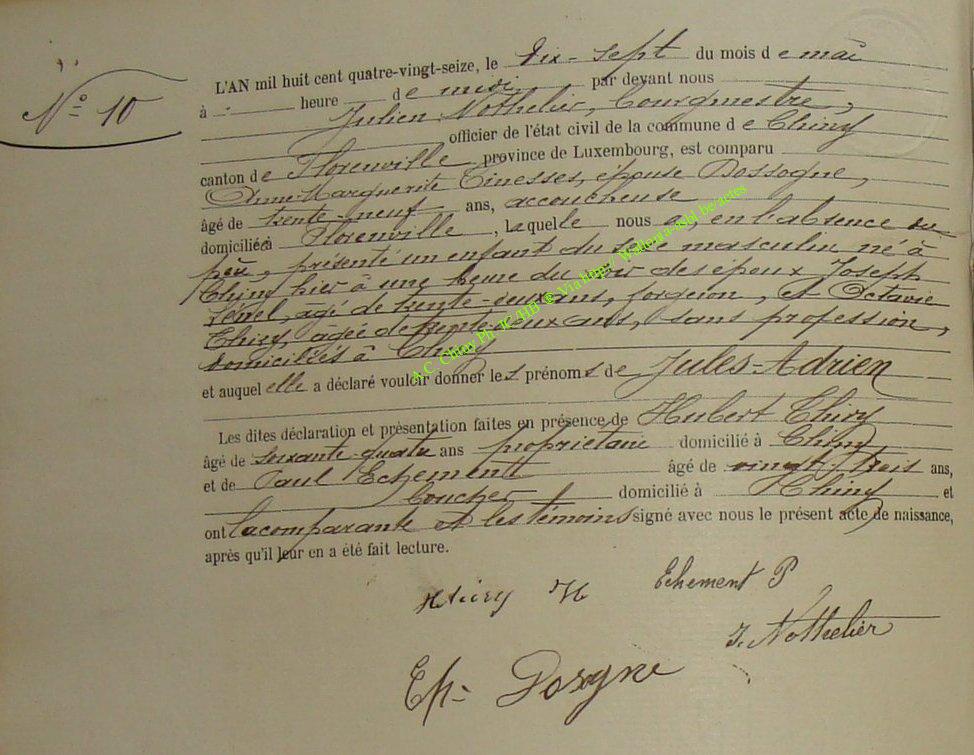 N° 10
L'AN mil huit cent quatre-vingt-seize, le dix-sept du mois de mai
à " heure de midi par devant nous
Julien Nothelier, Bourgmestre,
officier de l'état civil de la commune de Chiny
canton de Florenville province de Luxembourg, est comparu
Anne-Marguerite Tinesses, épouse Dossogne,
âgé de trente-neuf ans, accoucheuse
domiciliée à Florenville, laquelle nous a, en l'absence du
père, présenté un enfant du sexe masculin né à
Chiny hier à une heure du soir des époux Joseph
âgé de trente- ans, forgeron, et Octavie
Thiry, âgée de ans, sans profession,
domiciliés à Chiny
et auquel elle a déclaré vouloir donner les prénoms de Jules-Adrien
Les dites déclaration et présentation faites en présence de Hubert Thiry
âgé de soixante-quatre ans propriétaire domicilié à Chiny
et de Paul Echement âgé de vingt-trois ans,
domicilié à Chiny et
ont la comparante et les témoins signé avec nous le présent acte de naissance,
après qu'il leur en a été fait lecture.
Thiry H Echement P
J. Nothelier
Ep- Dosogne
A.C. Chiny Ph. JC/HB @ Via http:// Wallonia-asbl.be/actes